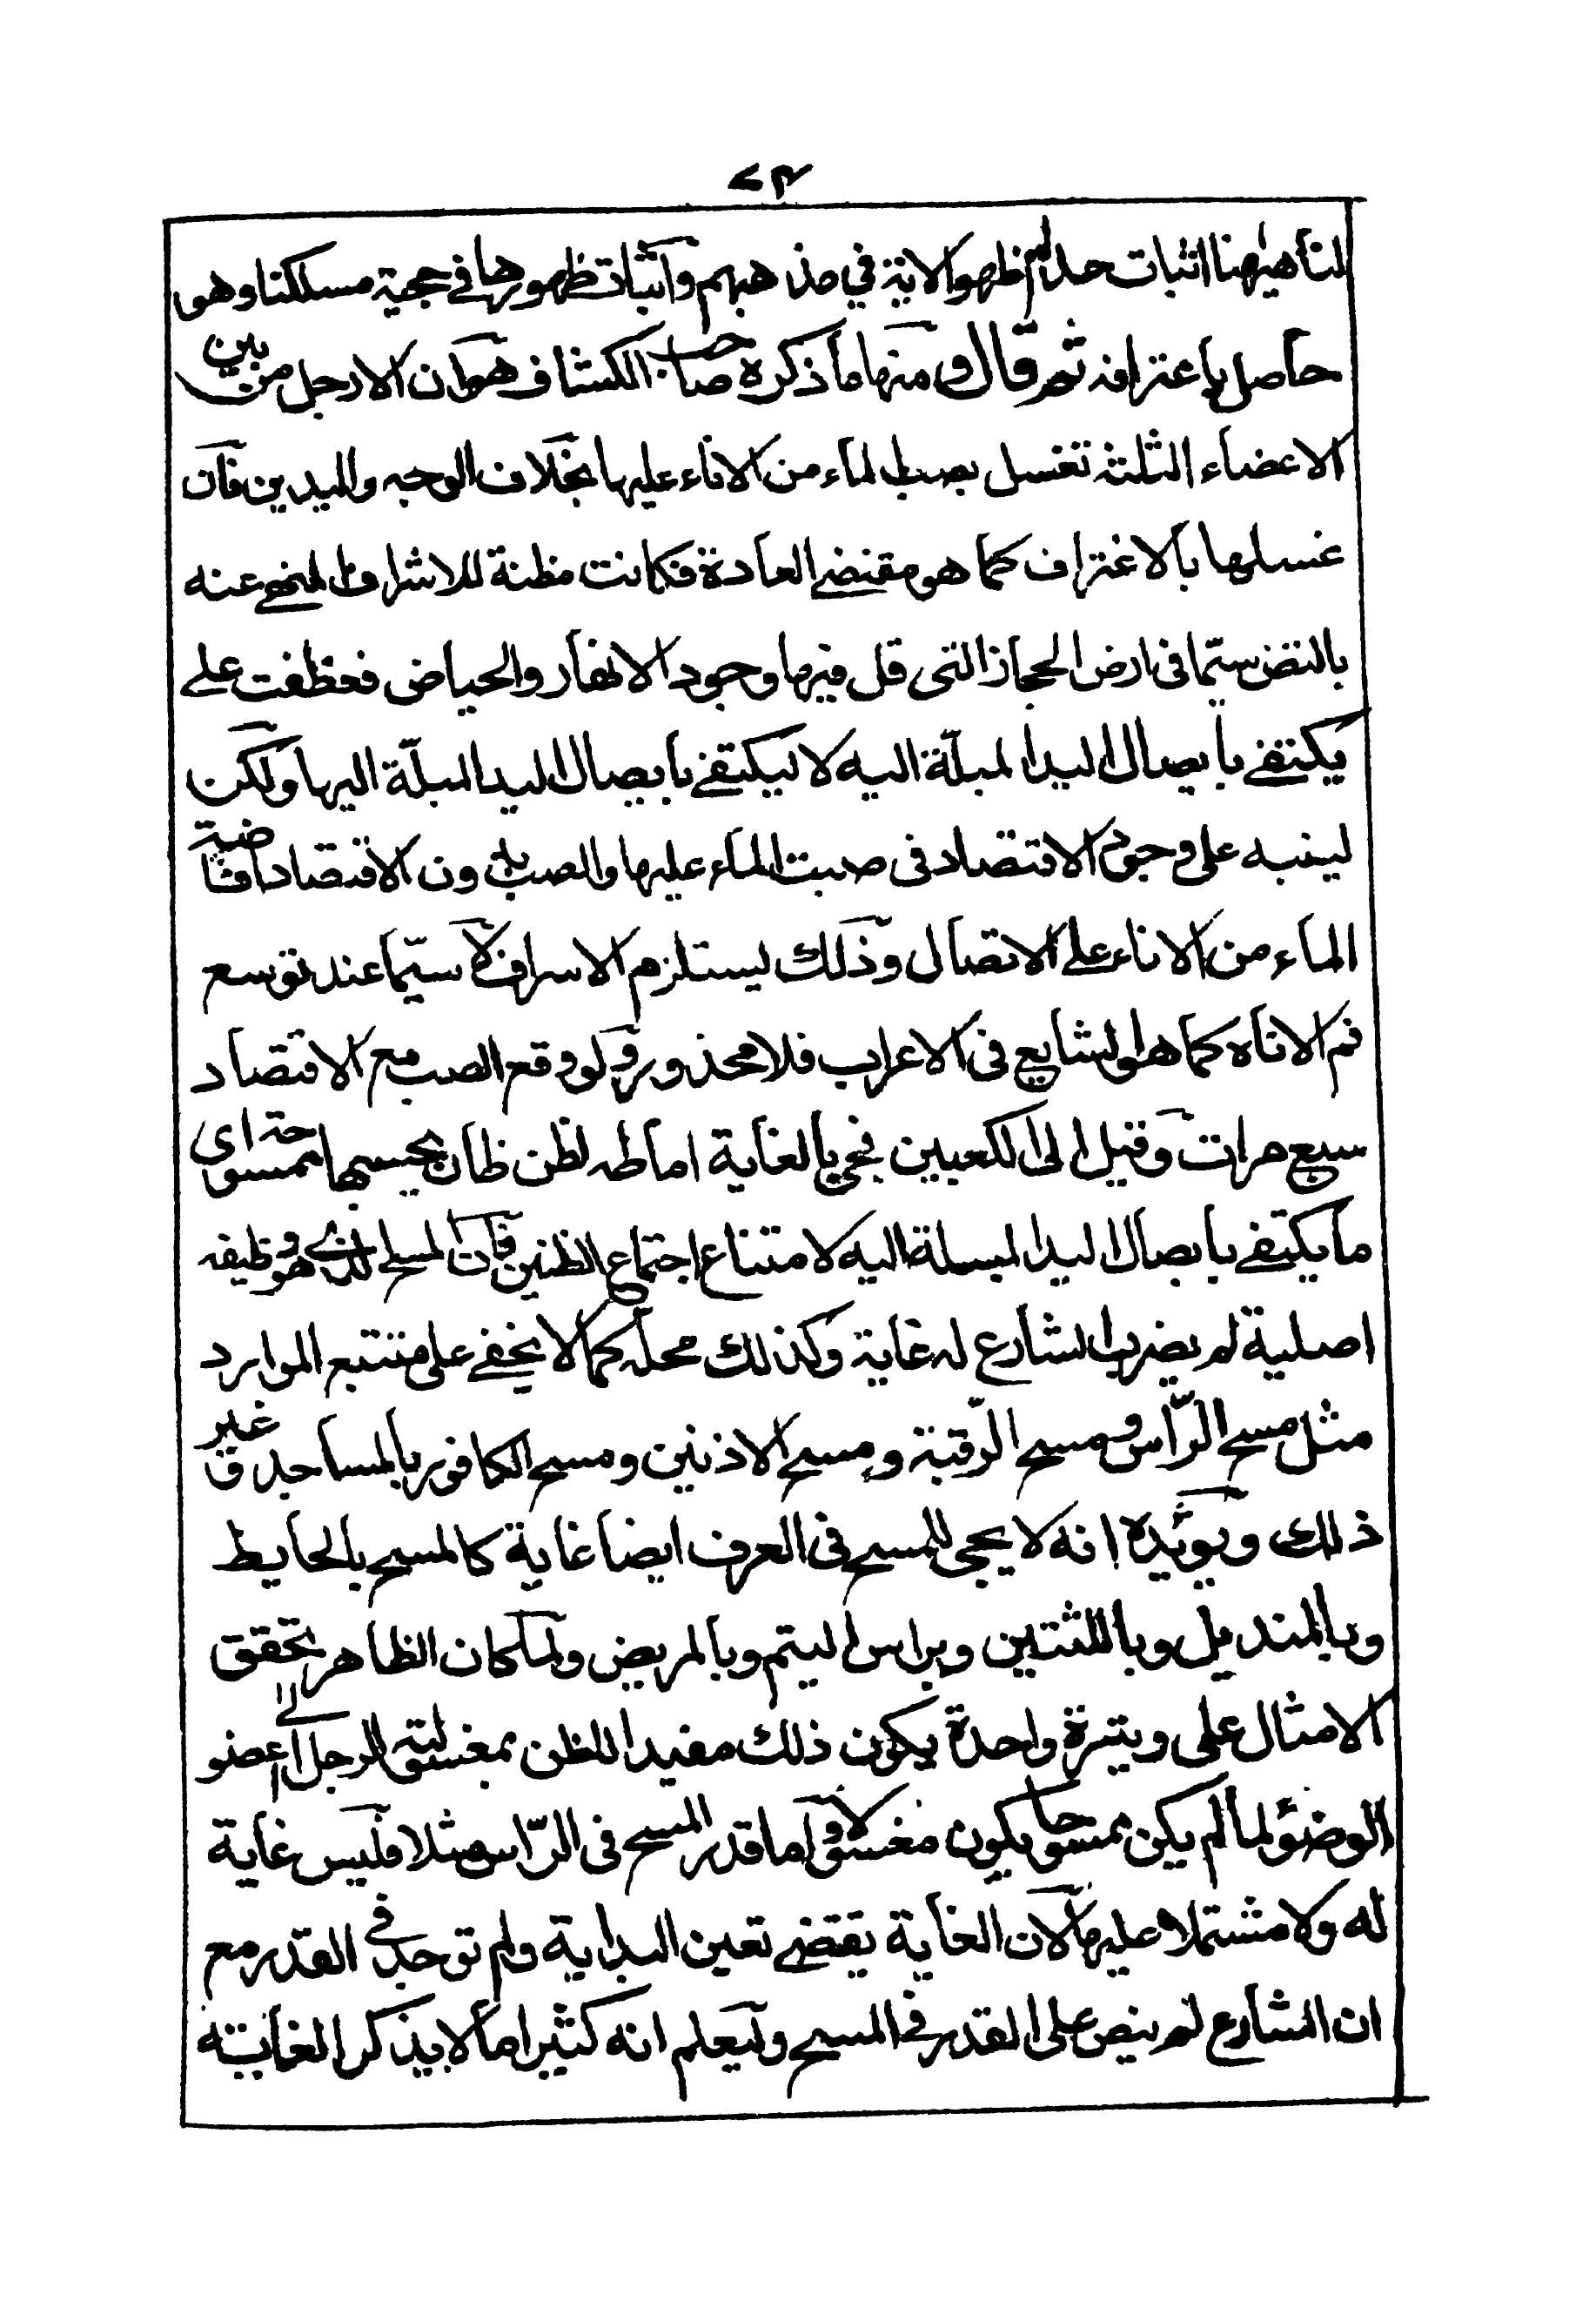 ٧٣
لنا ههنا اثبات عدم ظهور الاية في مذهبهم واثبات ظهورها في حجية مسلكنا وهو
حاصل باعترافه ثم قال ومنها ما ذكره صاحب الكشاف هو ان الارجل من بين
الاعضاء الثلثة تغسل بصب الماء من الاناء عليها بخلاف الوجه واليدين فان
غسلها بالاغتراف كما هو مقتضے العادة فكانت مظنة للاسراف المنهے عنه
بالنص سيّما فى ارض الحجاز التى قل فيها وجود الانهار والحياض فعطفت علے
يكتفے بايصال اليد المبلّة اليه لا ليكتفے بايصال اليد المبلّة اليها ولكن
لينبه على وجوب الاقتصاد فى صبّ الماء عليها والصب بدون الاقتصاد افاضة
الماء من الاناء على الاتصال وذلك يستلزم الاسراف لا سيّما عند توسع
فم الاناء كما هو الشايع فى الاعراب فلا محذور ولو وقع الصب مع الاقتصاد
سبع مرات وقيل الى الكعبين فجئ بالغاية اماطة لظن ظان يحسبها ممسوحة اى
ما يكتفے بايصال اليد المبلة اليه لامتناع اجتماع الظنين فان المسح الذے هو وظيفه
اصلية لم يضرب الشارع له غاية وكذلك محله كما لا يخفے على متتبع الموارد
مثل مسح الرّاس ومسح الرّقبة ومسح الاذنين ومسح الكافور بالمساجد و غير
ذلك ويؤيّده انه لا يجئ للمسح فى العرف ايضا غاية كالمسح بالحايط
وبالمنديل وباللثتين وبراس اليتيم وبالمريض ولما كان الظاهر تحقق
الامثال على وتيرة واحدة يكون ذلك مفيدا للظن بمغسولية الرجل اے اعضو
الوضؤ لما لم يكن ممسوحا يكون مغسولا واما قدر المسح فى الرّاس مثلا فليس غاية
له ولا مشتملا عليها لان الغاية يقتضے تعين البداية ولم توجد فى القدر مع
ان الشارع لم ينص على القدر فى المسح وليعلم انه كثيرا ما لا يذكر الغاية